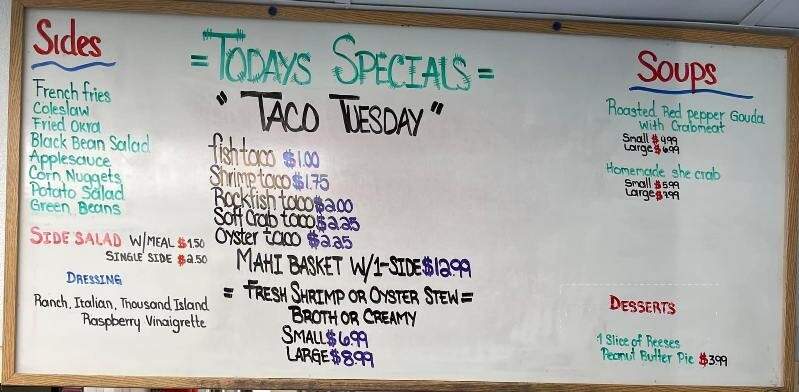 Sides
French fries
Coleslaw
Fried Okra
Black Bean Salad
Applesauce
Corn Nuggets
Potato Salad
Green Beans
SIDE SALAD W/MEAL $1.50
SINGLE SIDE $2.50
DRESSING
Ranch, Italian, Thousand Island
Raspberry Vinaigrette
=TODAYS SPECIALS=
"TACO TUESDAY"
fish taco $1.00
Shrimp taco $1.75
Rockfish taco $2.00
Soft Crab taco $2.25
Oyster taco $2.25
MAHI BASKET W/1-SIDE $12.99
= FRESH SHRIMP OR OYSTER STEW =
BROTH OR CREAMY
SMALL $6.99
LARGE $8.99
SOUPS
Roasted Red pepper Gouda
with Crabmeat
Small $4.99
Large $6.99
Homemade she crab
Small $5.99
Large $7.99
DESSERTS
1 Slice of Reeses
Peanut Butter Pie $3.99